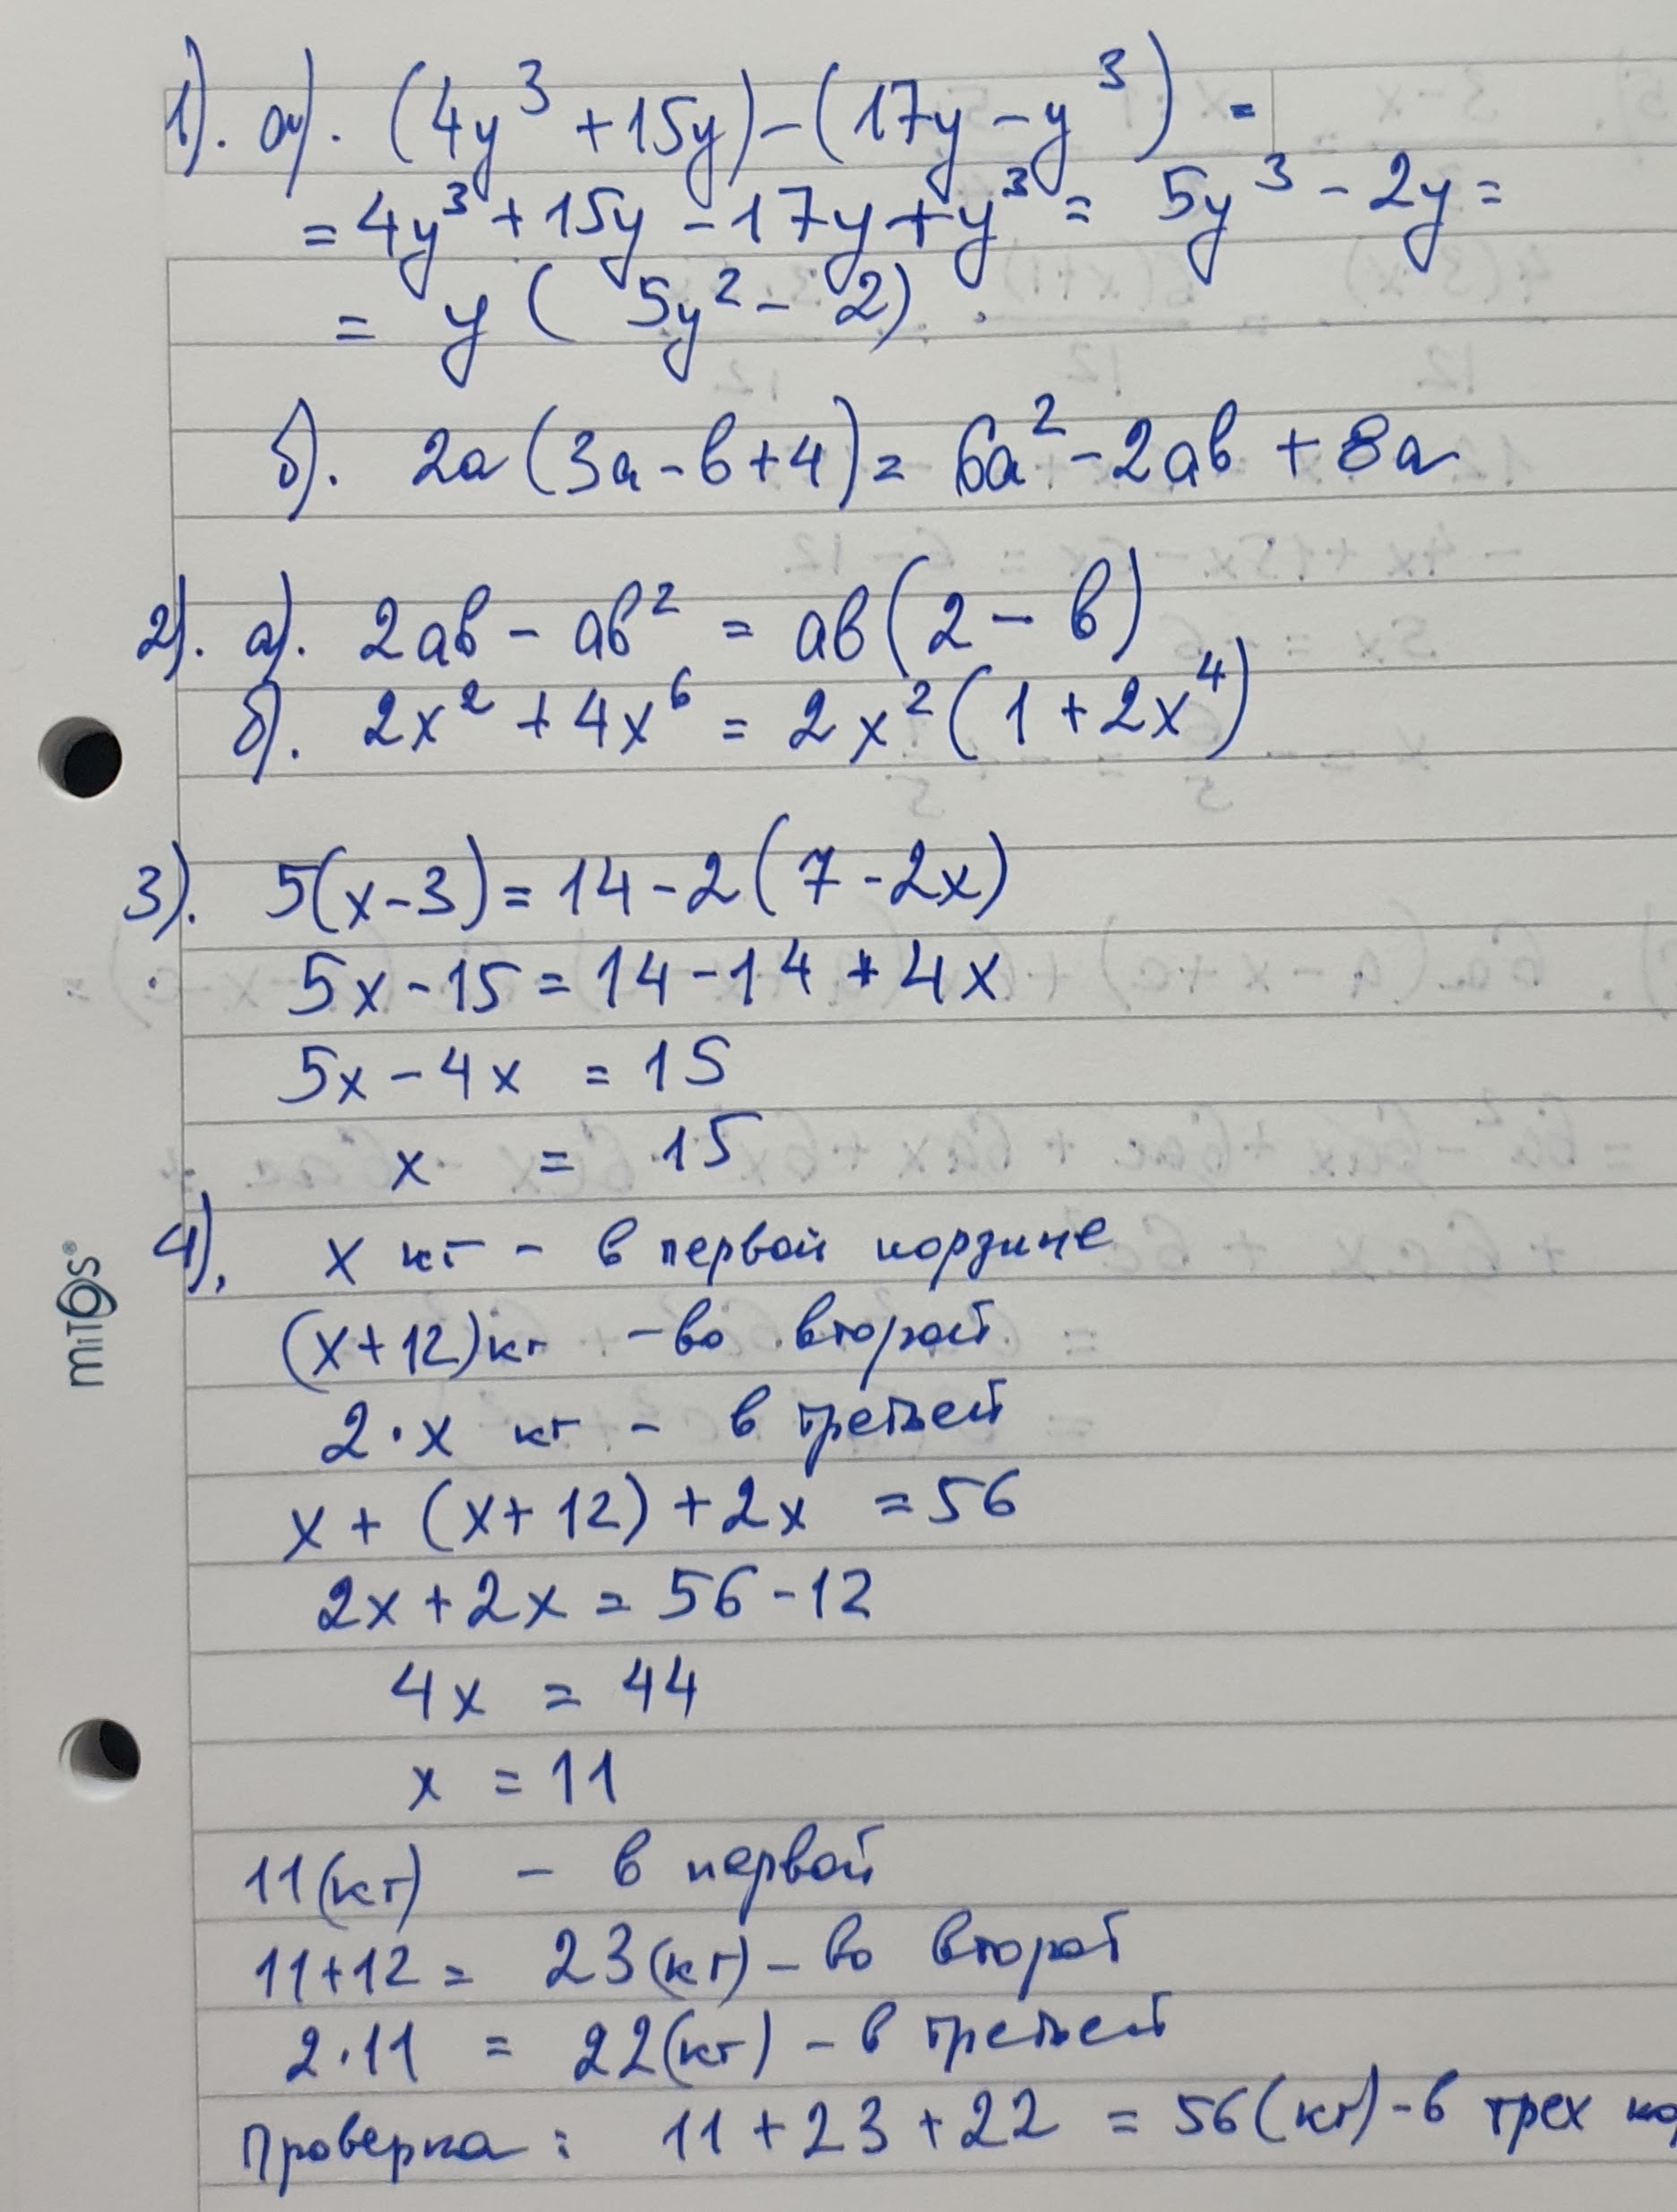 1). а). (4y³ + 15y) - (17y - y³) =
= 4y³ + 15y - 17y + y³ = 5y³ - 2y =
= y ( 5y² - 2) .
б). 2a (3a - b + 4) = 6a² - 2ab + 8a
2). а). 2ab - ab² = ab (2 - b)
б). 2x² + 4x⁶ = 2x² (1 + 2x⁴)
3). 5(x-3) = 14 - 2 (7 - 2x)
5x - 15 = 14 - 14 + 4x
5x - 4x = 15
x = 15
4). x кг - в первой корзине
(x+12) кг - во второй
2·x кг - в третьей
x + (x + 12) + 2x = 56
2x + 2x = 56 - 12
4x = 44
x = 11
11 (кг) - в первой
11 + 12 = 23 (кг) - во второй
2·11 = 22 (кг) - в третьей
Проверка: 11 + 23 + 22 = 56 (кг) - в трех
miTOS®